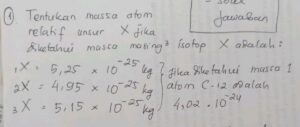 ① Tentukan massa atom
relatif unsur X jika
diketahui massa masing² isotop X adalah :
₁X = 5,25 × 10⁻²⁵ kg
₂X = 4,95 × 10⁻²⁵ kg
₃X = 5,15 × 10⁻²⁵ kg
jika diketahui massa 1
atom C-12 adalah
4,02 . 10⁻²⁴
jawaban